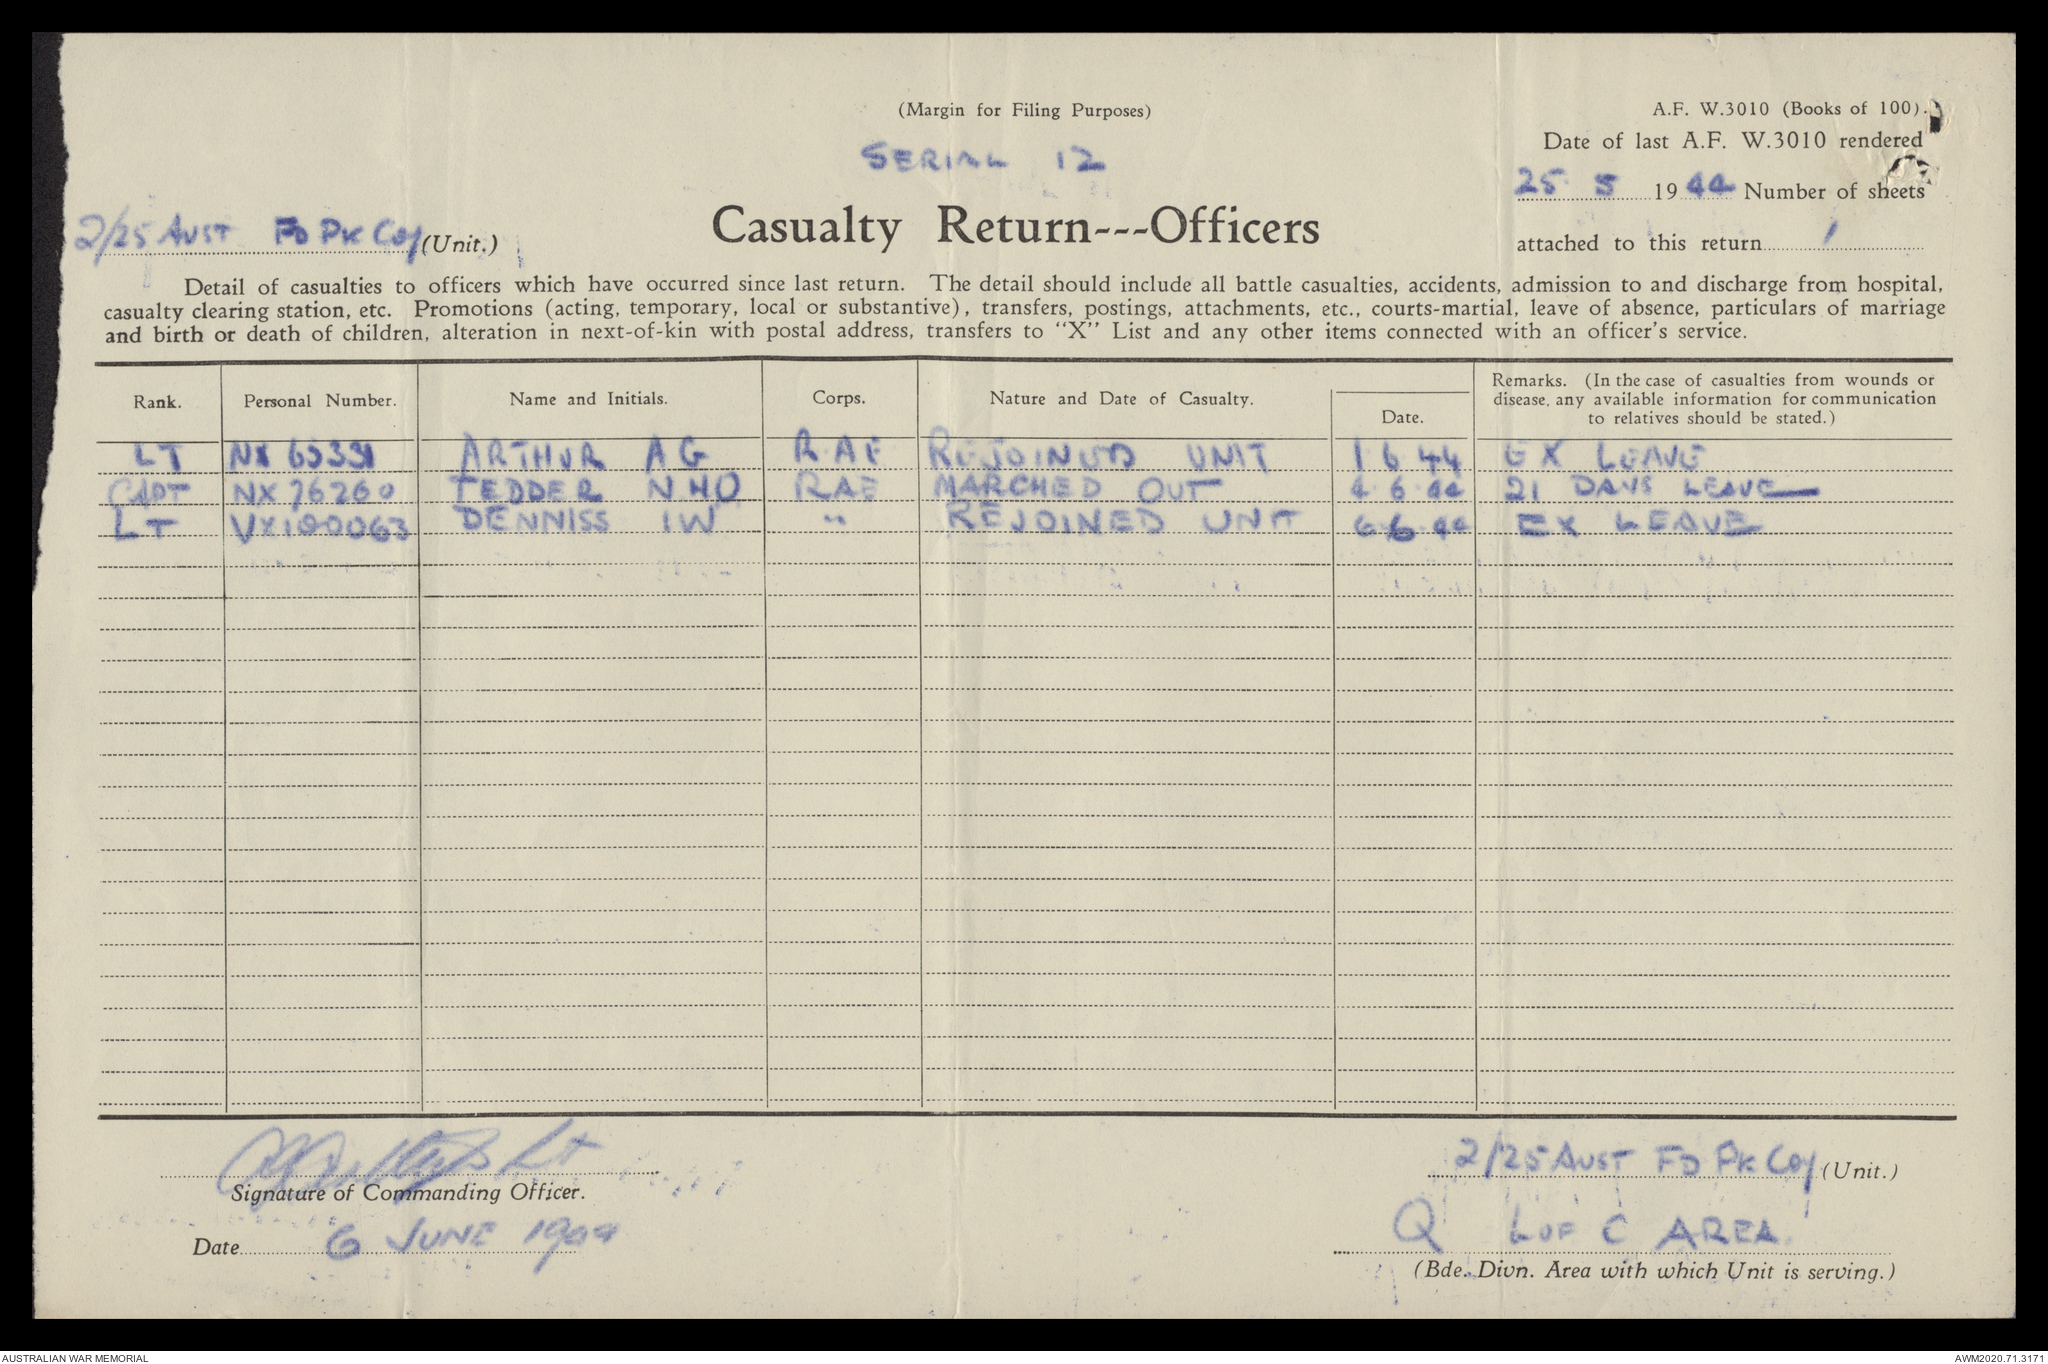 (Margin for Filing Purposes)
A.F. W.3010 (Books of 100).
Date of last A.F. W.3010 rendered
SERIAL 12
25 5 1944 Number of sheets
2/25 AUST FD PK COY (Unit.)
Casualty Return---Officers
attached to this return 1
Detail of casualties to officers which have occurred since last return. The detail should include all battle casualties, accidents, admission to and discharge from hospital,
casualty clearing station, etc. Promotions (acting, temporary, local or substantive), transfers, postings, attachments, etc., courts-martial, leave of absence, particulars of marriage
and birth or death of children, alteration in next-of-kin with postal address, transfers to "X" List and any other items connected with an officer's service.
Rank. Personal Number. Name and Initials. Corps. Nature and Date of Casualty. Date. Remarks. (In the case of casualties from wounds or
disease, any available information for communication
to relatives should be stated.)
LT ARTHUR AG RAE REJOINED UNIT 1 6 44 EX LEAVE
CAPT NX 76260 TEDDER NHO RAE MARCHED OUT 4 6 44 21 DAYS LEAVE
LT VX100063 DENNISS IW " REJOINED UNIT 6 6 44 EX LEAVE
Lt
Signature of Commanding Officer.
Date 6 JUNE 1944
2/25 AUST FD PK COY (Unit.)
Q L OF C AREA.
(Bde. Divn. Area with which Unit is serving.)
AUSTRALIAN WAR MEMORIAL
AWM2020.71.3171